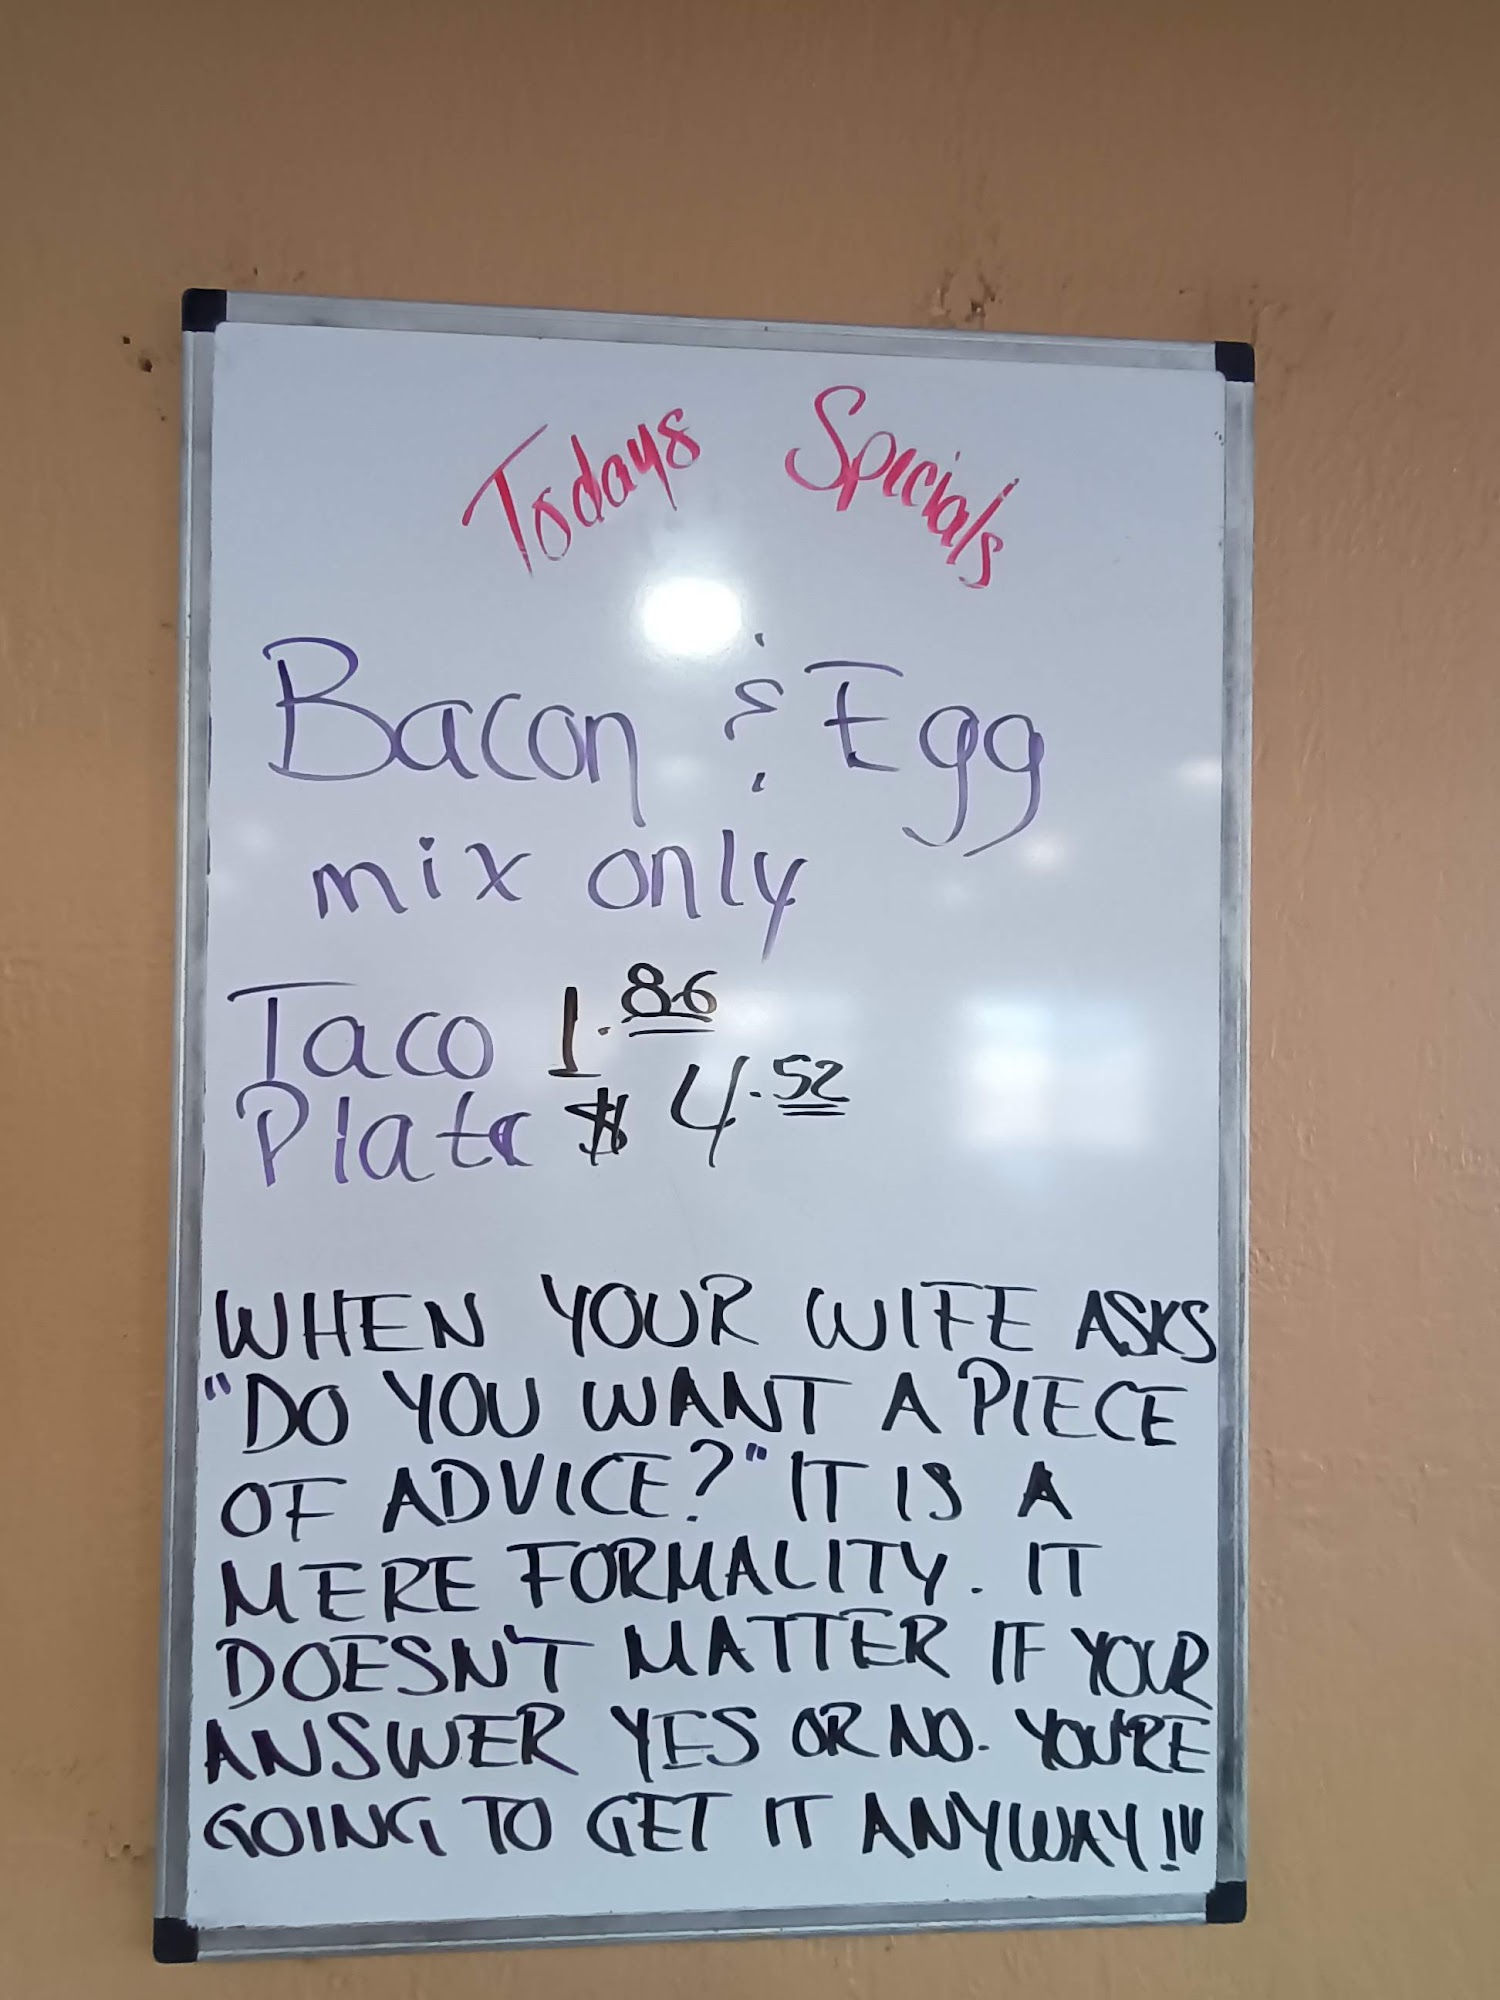 Todays Specials
Bacon & Egg
mix only
Taco 1.86
Plate $ 4.52
WHEN YOUR WIFE ASKS
"DO YOU WANT A PIECE
OF ADVICE?" IT IS A
MERE FORMALITY. IT
DOESN'T MATTER IF YOUR
ANSWER YES OR NO. YOU'RE
GOING TO GET IT ANYWAY!"